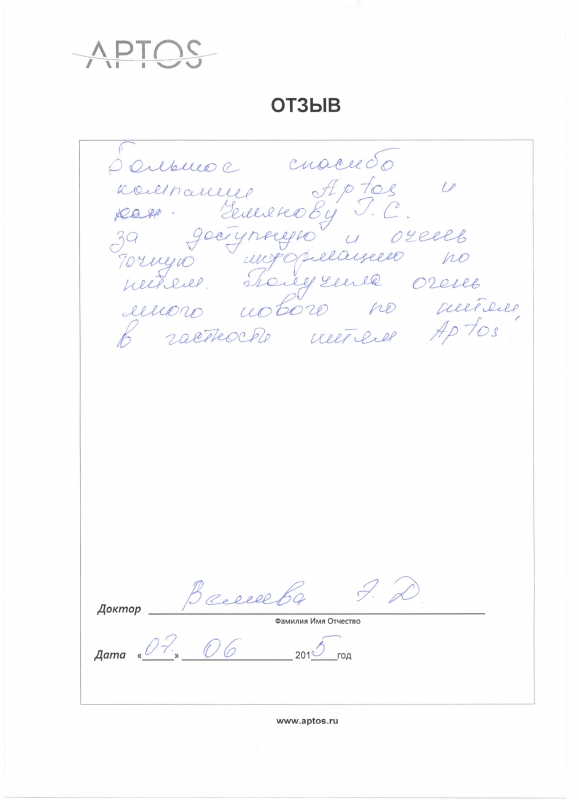 APTOS
ОТЗЫВ
Большое спасибо
компании Aptos и
Чемянову Г. С.
за доступную и очень
точную информацию по
нитям. Получила очень
много нового по нитям,
в частности нитям Aptos.
Доктор Валиева Э. Д.
Фамилия Имя Отчество
Дата «07» 06 2015 год
www.aptos.ru